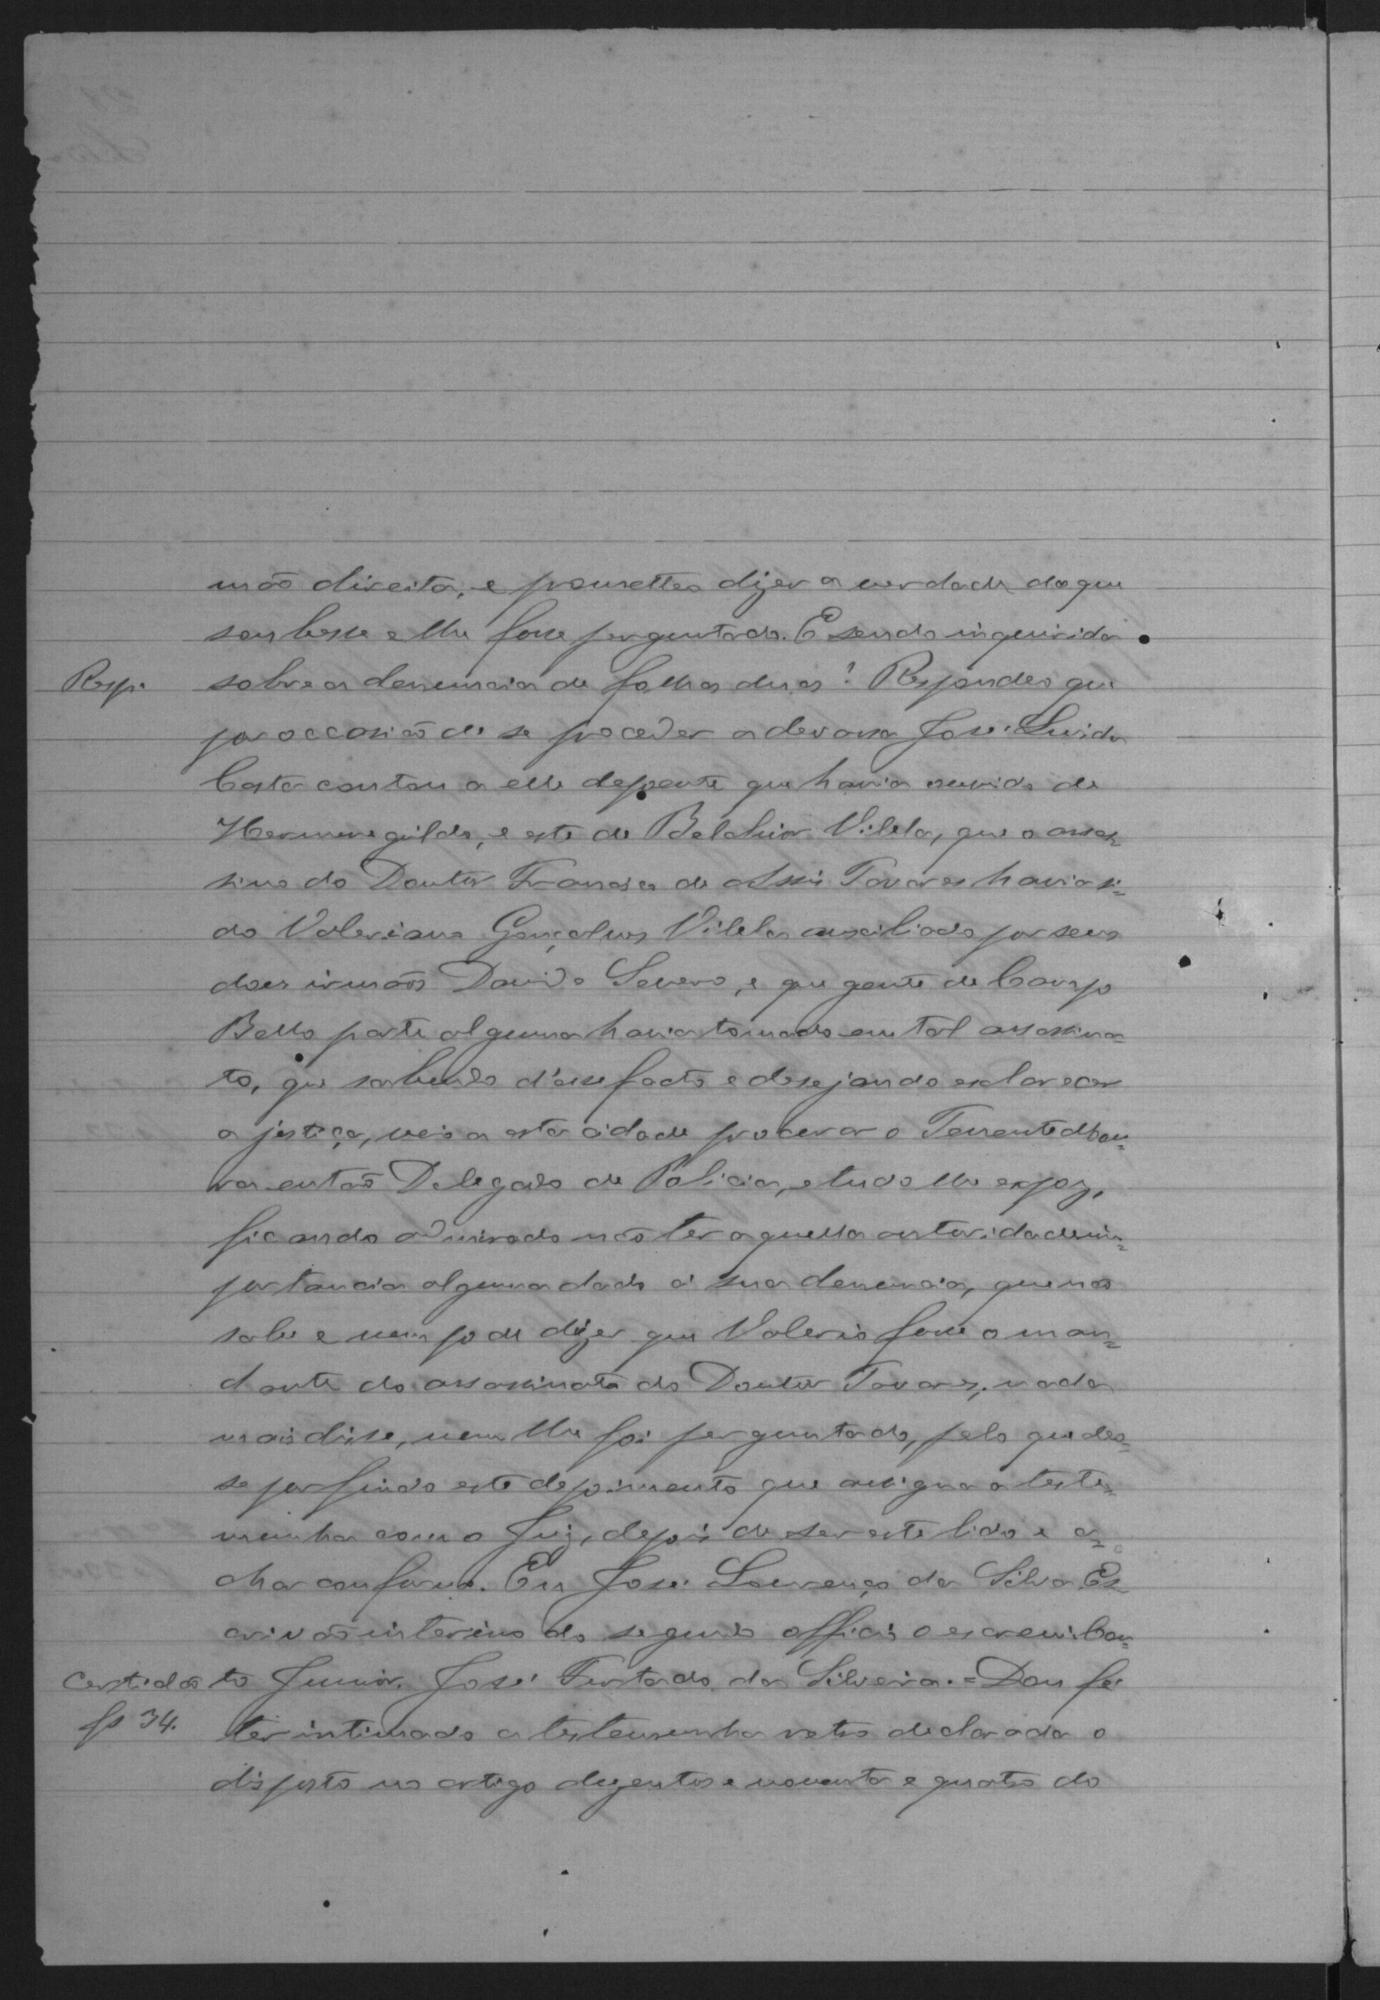 mão direita, e prometteo dizer a verdade do que
soubesse e lhe fosse perguntado. E sendo inquirido
Resp. sobre a denuncia de folhas duas? Respondeo que
por occasião de se proceder a devassa José Luis da
Costa contou a elle depoente que havia ouvido de
Hermenegildo, e este de Belchior Vilela, que o assas=
sino do Doutor Francisco de Assis Tavares havia si=
do Valeriano Gonçalves Vilela auxiliado por seus
dous irmãos David e Severo, e que gente de Campo
Bello parte alguma havia tomado em tal assassina=
to, que sabendo d'esse facto e desejando esclarecer
a justiça, veio a esta cidade procurar o Tenente
então Delegado de Policia, e tudo lhe expoz,
ficando admirado não ter aquella autoridade im=
portancia alguma dado á sua denuncia, que não
sabe e nem pode dizer que Valerio fosse o man=
dante do assassinato do Doutor Tavares; nada
mais disse, nem lhe foi perguntado, pelo que deo=
se por findo este depoimento que assigna a teste=
munha com o Juiz, depois de ser este lido e a=
char conforme. Eu José Lourenço da Silva Es=
crivão interino do segundo officio o escrevi. Cou=
Certidão to Junior. José Furtado da Silveira. = Dou fé
fs 34. ter intimado a testemunha retro declarada o
disposto no artigo duzentos e noventa e quatro do